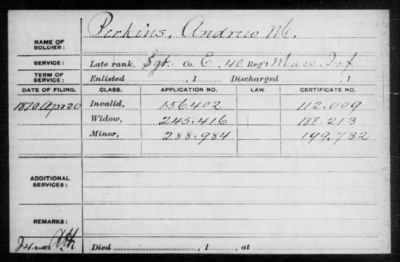 NAME OF SOLDIER: Perkins, Andrew M.
SERVICE: Late rank, Sgt. Co. E, 40 Reg't Mass. Inf
TERM OF SERVICE: Enlisted , 1 Discharged , 1
DATE OF FILING. CLASS. APPLICATION NO. LAW. CERTIFICATE NO.
1870 Apr 20 Invalid, 156.402 112.009
Widow, 245.416 188.213
Minor, 288.984 199.732
ADDITIONAL SERVICES:
REMARKS:
Died , 1 , at